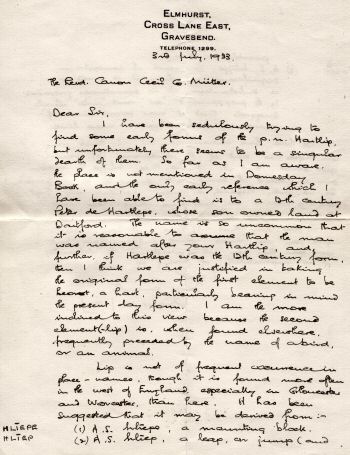 ELMHURST,
CROSS LANE EAST,
GRAVESEND.
TELEPHONE 1299.
3rd July, 1933
The Revd. Canon Cecil G.
Dear Sir,
I have been sedulously trying to
find some early forms of the p.n. Hartlip,
but unfortunately there seems to be a singular
dearth of them. So far as I am aware,
the place is not mentioned in Domesday
Book, and the only early reference which I
have been able to find is to a 13th century
Peter de Hertlepe, whose son owned land at
Dartford. The name is so uncommon that
it is reasonable to assume that the man
was named after your Hartlip, and
further, if Hertlepe was the 13th century form,
then I think we are justified in taking
the original form of the first element to be
heorot, a hart, particularly bearing in mind
the present day form. I am the more
inclined to this view because the second
element (-lip) is, when found elsewhere,
frequently preceded by the name of a bird,
or an animal.
Lip is not of frequent occurrence in
place-names, though it is found more often
in the west of England, especially in Gloucester
and Worcester, than here. It has been
suggested that it may be derived from :-
HLĪEPE (1) A.S. hliepe, a mounting block.
HLĪEP (2) A.S. hliep, a leap, or jump (and